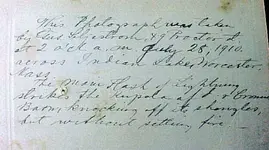 This Photograph was taken
by Gus Liljestrom, 49 Wooster St
at 2 o'clk a.m. July 28, 1910.
across Indian Lake, Worcester,
Mass.
The main flash of Lightning
strikes the Cupola of a
Barn, knocking off its shingles,
but without setting fire —